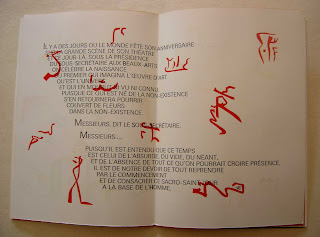 IL Y A DES JOURS OU LE MONDE FÊTE SON ANNIVERSAIRE
SUR LA GRANDE SCÈNE DE SON THÉÂTRE
ET CE JOUR-LÀ, SOUS LA PRÉSIDENCE
DU SOUS-SECRÉTAIRE AUX BEAUX-ARTS
ON CÉLÈBRE LA NAISSANCE
DU PREMIER QUI IMAGINA L'ŒUVRE D'ART
QU'EST L'UNIVERS
ET QUI EN MOURUT VU NI CONNU
PUISQUE CE QUI EST NÉ DE LA NON-EXISTENCE
S'EN RETOURNERA POURRIR
COUVERT DE FLEURS
DANS LA NON-EXISTENCE.
MESSIEURS, DIT LE SOUS-SECRÉTAIRE.
MESSIEURS...
PUISQU'IL EST ENTENDU QUE CE TEMPS
EST CELUI DE L'ABSURDE, DU VIDE, DU NÉANT,
ET DE L'ABSENCE DE TOUT CE QU'ON POURRAIT CROIRE PRÉSENCE
IL EST DE NOTRE DEVOIR DE TOUT REPRENDRE
PAR LE COMMENCEMENT
ET DE CONSACRER CE SACRO-SAINT JOUR
A LA BASE DE L'HOMME.